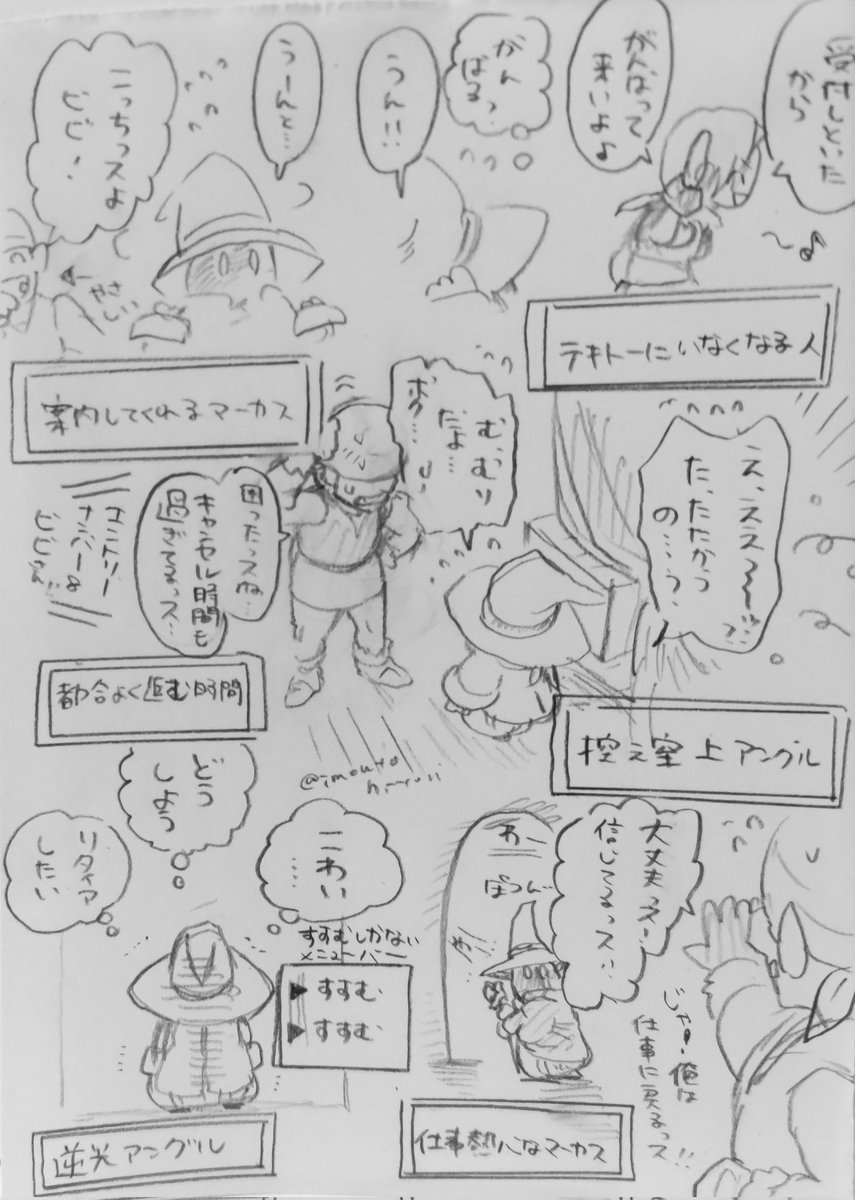 受付しといた
から
がんばって
来いよよ
がん
ばるっ
うん!!
うーんと…
こっちっスよ
ビビ!
やさしい
テキトーにいなくなる人
案内してくれるマーカス
え、ええ〜〜!!?
た、たたかう
の…?
む、むり
だよ…
ボク…
困ったっスね…
キャンセル時間も
過ぎてるっス…
エントリー
ナンバー
控え室上アングル
都合よく進む時間
@imouto
大丈夫っスー
信じてるっス!!
じゃ!俺は
仕事に戻るっス!!
わー
ぽつん
こわい
……
どう
しよう
リタイア
したい
すすむしかない
メニューバー
▶すすむ
▶すすむ
仕事熱心なマーカス
逆光アングル